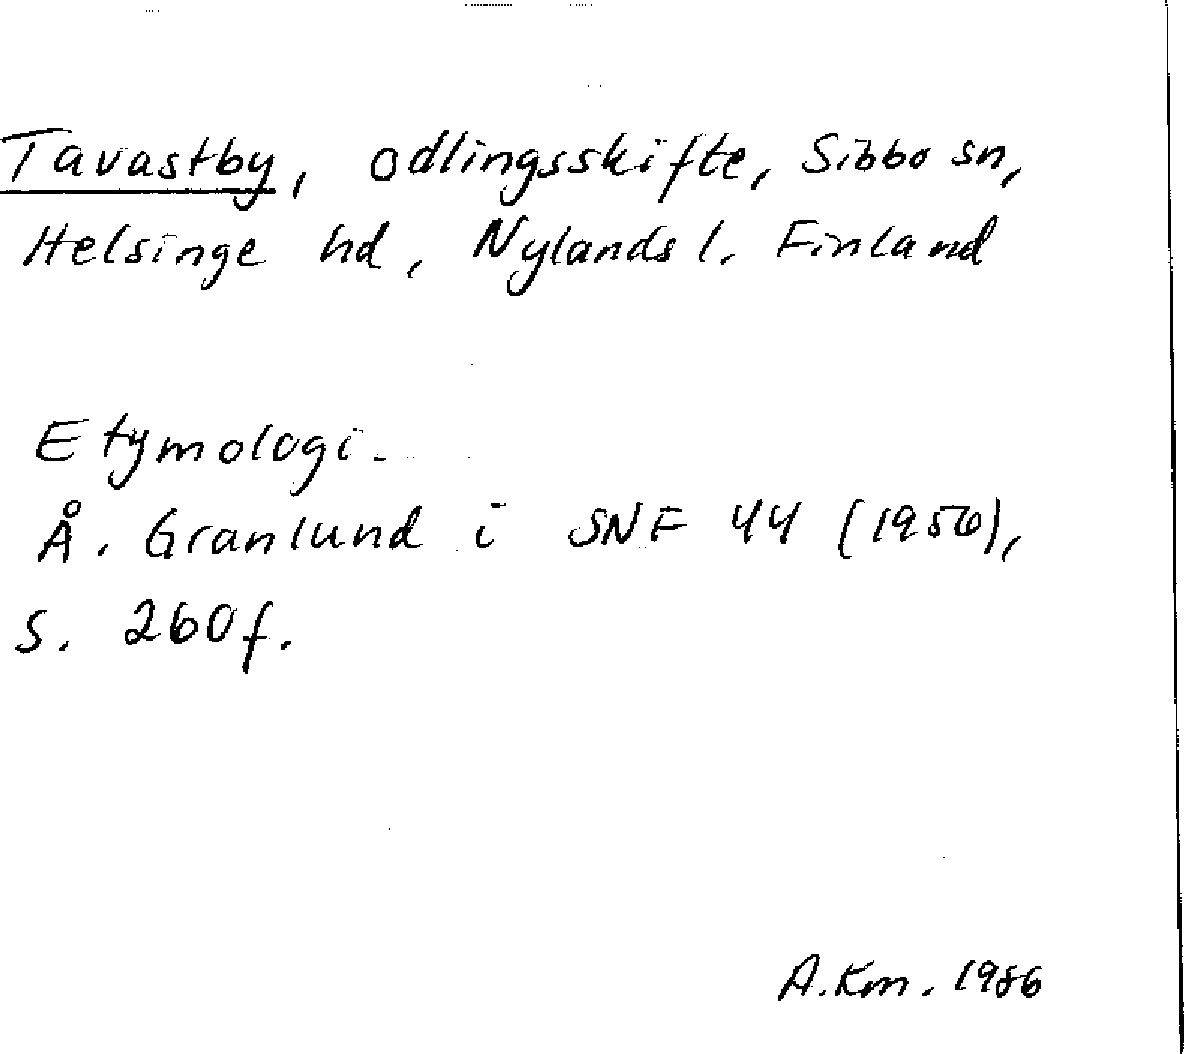 Tavastby, odlingsskifte, Sibbo sn,
Helsinge hd, Nylands l. Finland
Etymologi.
Å. Granlund i SNF 44 (1956),
s. 260f.
A.Km. 1986